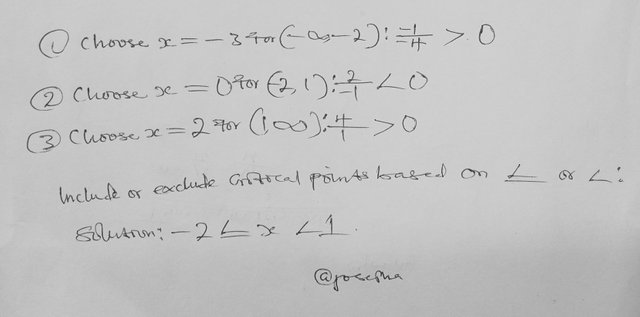 ① Choose x = -3 for (-∞, -2): -1/-4 > 0
② Choose x = 0 for (-2, 1): 2/-1 < 0
③ Choose x = 2 for (1, ∞): 4/1 > 0
Include or exclude critical points based on ≤ or <:
Solution: -2 ≤ x < 1.
@josepha